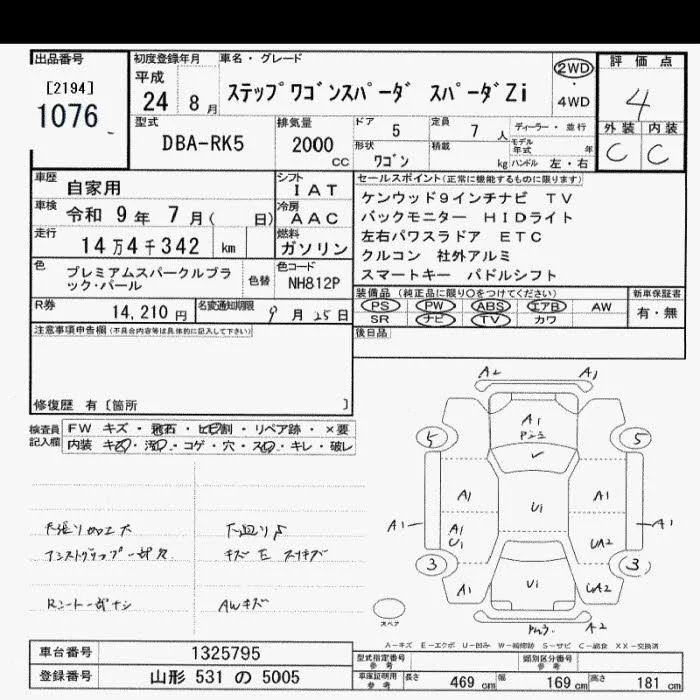 出品番号
[2194]
1076
初度登録年月
平成
24 8月
車名・グレード
ステップワゴンスパーダ スパーダZi
2WD
・
4WD
評価点
4
外装 内装
C C
型式
DBA-RK5
排気量
2000
CC
ドア
5
定員
7 人
形状
ワゴン
積載
kg
ディーラー・並行
モデル年式 年
ハンドル 左・右
車歴
自家用
シフト
IAT
車検
令和 9年 7月( 日)
冷房
AAC
走行
14万4千342 km
燃料
ガソリン
色
プレミアムスパークルブラック・パール
色替
色コード
NH812P
R券
14,210 円
名変通知期限
9月25日
セールスポイント(正常に機能するものに限ります)
ケンウッド9インチナビ TV
バックモニター HIDライト
左右パワスラドア ETC
クルコン 社外アルミ
スマートキー パドルシフト
装備品(純正品に限り○をつけてください)
PS PW ABS エアB AW
SR ナビ TV カワ
新車保証書
有・無
後日品
注意事項申告欄(不具合内容等は具体的に記入して下さい)
修復歴 有〔箇所 〕
検査員記入欄
FW キズ・飛石・ヒビ割・リペア跡・×要
内装 キズ・汚れ・コゲ・穴・スレ・キレ・破レ
下廻りサ
キズ モ スリキズ
AWキズ
A2 A1
A1
5 5
A1 U1 A1
A1 A1 A1
U1 UA2
3 3
A1 U1 UA2
A2
スペア
A-キズ E-エクボ U-凹み W-補修跡 S-サビ C-腐食 XX-交換済
車台番号
1325795
登録番号
山形 531 の 5005
型式指定番号
参考
類別区分番号
参考
車庫証明用
参考
長さ 469 cm 幅 169 cm 高さ 181 cm